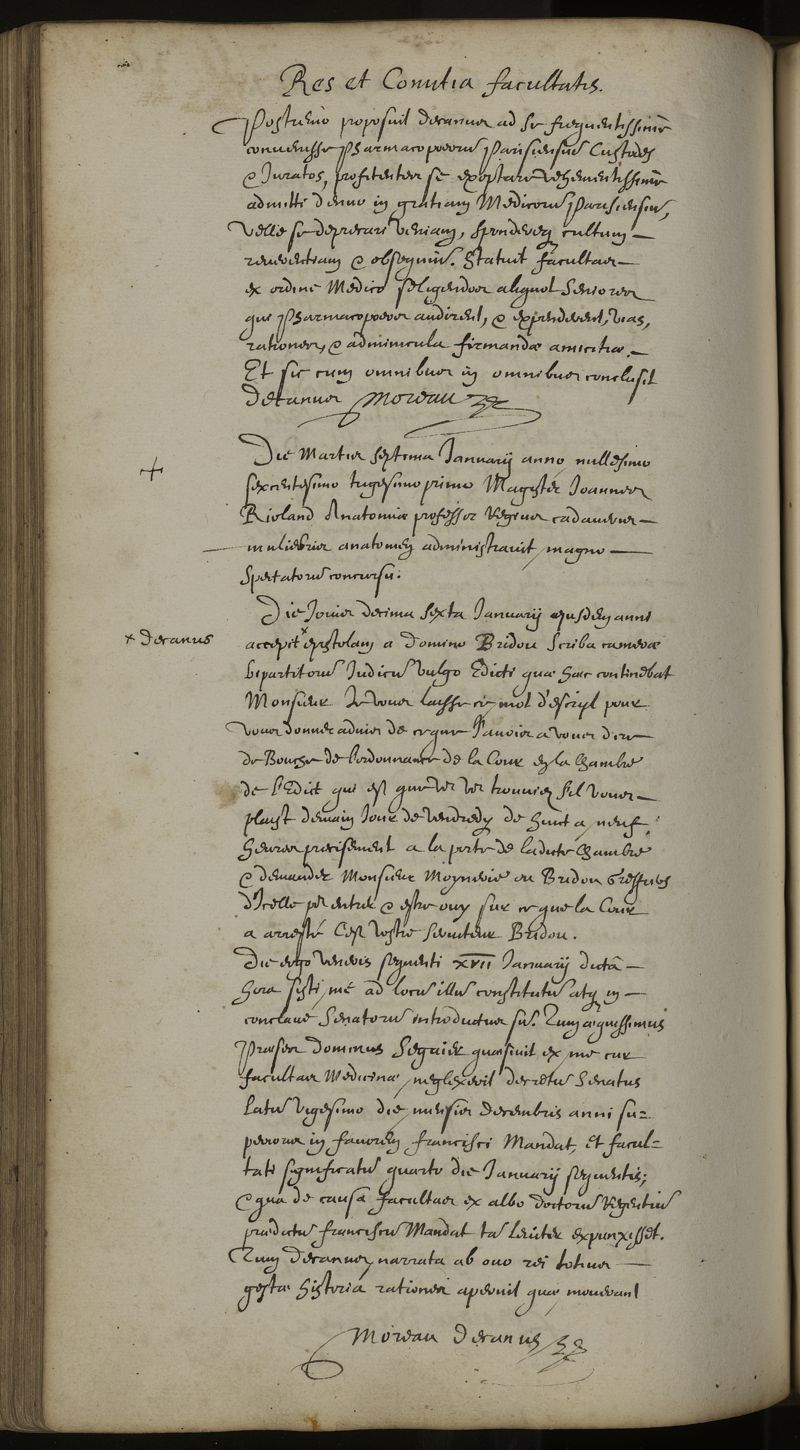 Res et Consilia facultatis.
Postremo proposuit decanus ad se frequentissimè
convenisse Pharmacopoeorū Parisiensiū Custodes
& Juratos, profitentes se exoptare vehementissimè
admitti denuo in gratiam Medicorū Parisiensiū,
velle se deprecari veniam, spondereq cultum
reverentiam & obsequiū. Statuit facultas
ex ordine Medico seligendos aliquot Seniores
qui Pharmacopoeos audirent, & expenderent, vias,
rationes, & adminicula firmandae amicitiae.
Et sic cum omnibus in omnibus conclusit
Decanus Moreau
Die Martis septima Januarij anno millesimo
+
sexcentesimo trigesimo primo Magister Joannes
Rioland Anatomiae professor Regius cadaveris
muliebris anatomen administravit, magno
spectatorū concursu.
Die Jovis decima sexta Januarij ejusdem anni
x Decanus
accepit x epistolam a domino Bridou Scriba camerae
bipartitorū Judicū vulgo Edicti quae haec continebat
Monsieur Je vous laisse ce mot d'escript pour
vous donner advis de ce que J'avois a vous dire
de Bouche de l'ordonnance de la Cour en la Chambre
de l'Edict qui est que vous vous trouviez s'il vous
plaist demain Jour de vendredy de huict a neuf
heures precisement a la porte de ladicte Chambre
& demander Monsieur Moynerie ou Bridou Greffiers
d'Icelle por entrer & estre ouy sur ce que la Cour
a arresté C'est vostre serviteur Bridou.
Die ergo veneris sequenti XVII Januarij dictâ
hora sisti me ad locū illū constitutū atq in
conclave Senatorū introductus sū. Tum aequissimus
Praeses dominus Seguier quaesivit ex me cur
facultas Medicinae neglexerit decretū Senatus
latū vigesimo die mensis decembris anni su=
perioris in favorem francisci Mandat, et facul=
tati significatū quarto die Januarij sequentis;
& qua de causa facultas ex albo doctorū Regentiū
praedictū franciscū Mandat expunxisset.
Tum decanus, narrata ab ovo rei totius
gestae historiâ rationes aperuit quae moverant
Moreau Decanus